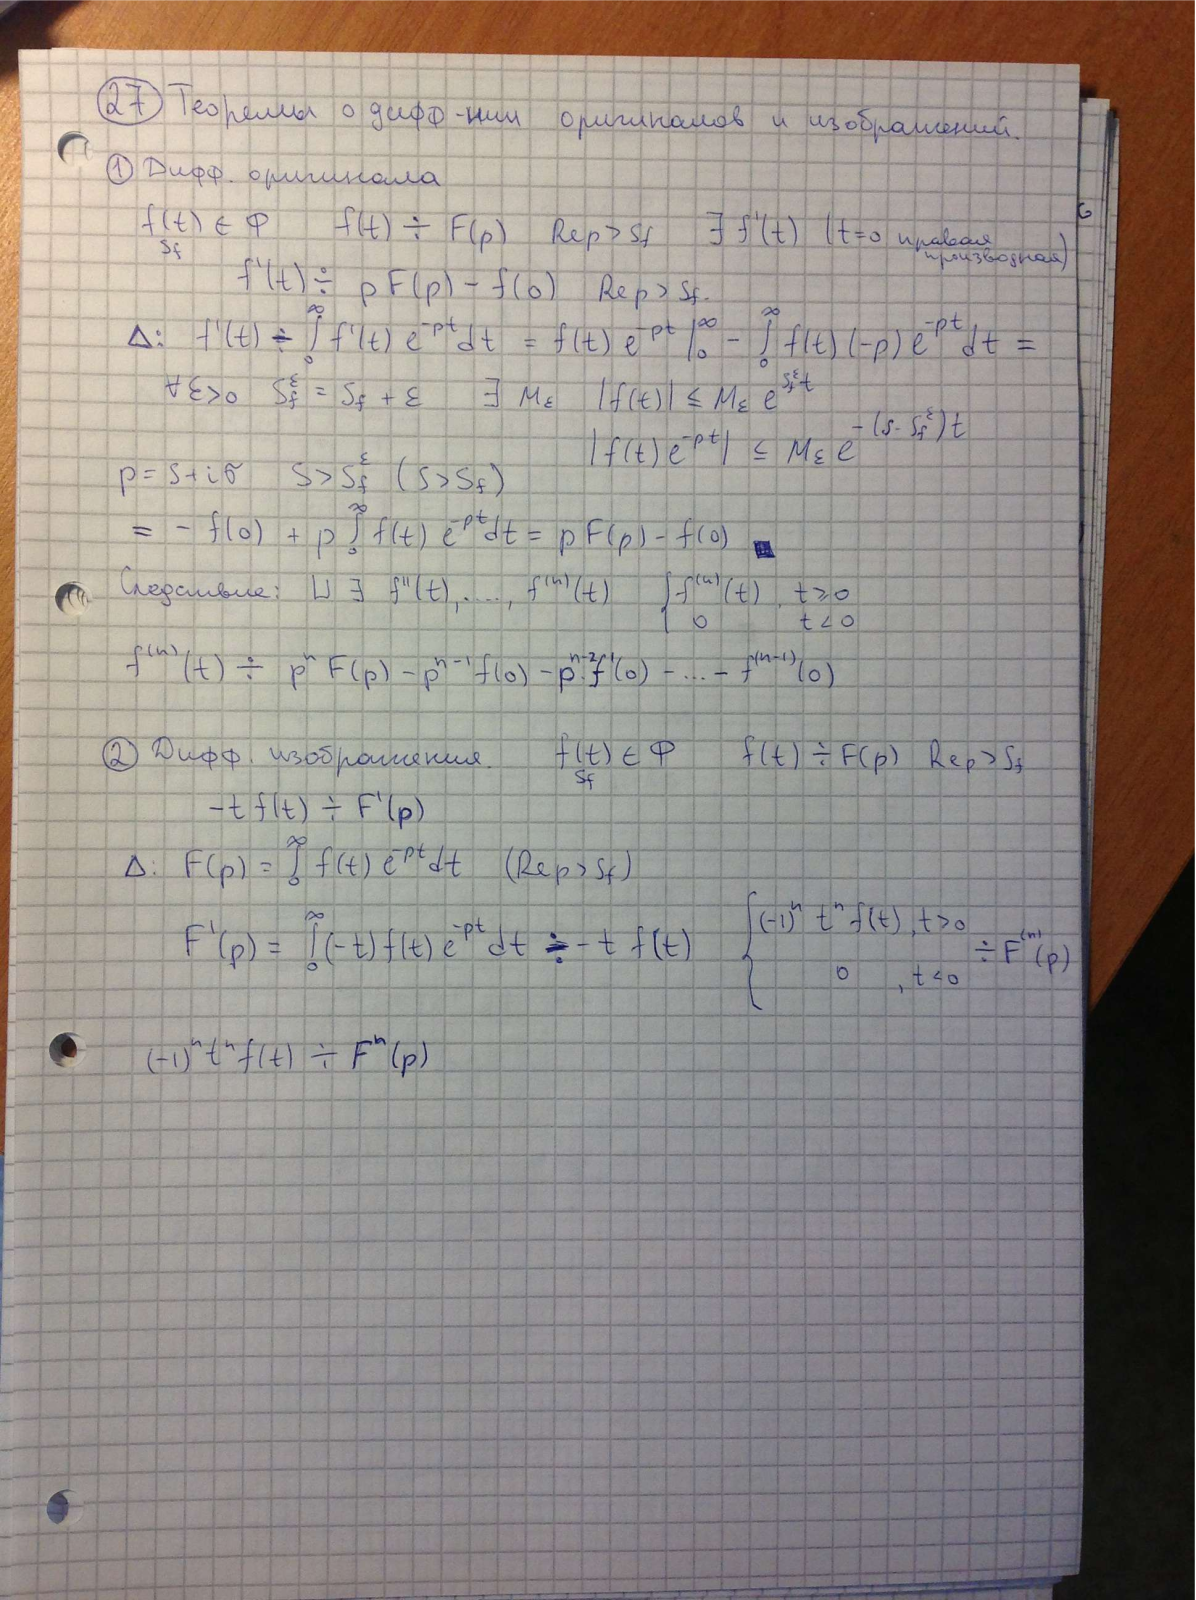 27 Теоремы о дифф-нии оригиналов и изображений.
① Дифф. оригинала
f(t) ∈ Ф   f(t) ÷ F(p)   Re p > S_f   ∃ f'(t) (t=0 правая производная)
S_f
f'(t) ÷ pF(p) − f(0)   Re p > S_f.
Δ: f'(t) ÷ ∫₀^∞ f'(t) e^{-pt} dt = f(t) e^{-pt} |₀^∞ − ∫₀^∞ f(t) (-p) e^{-pt} dt =
∀ε>0   S_f^ε = S_f + ε   ∃ M_ε   |f(t)| ≤ M_ε e^{S_f^ε t}
|f(t) e^{-pt}| ≤ M_ε e^{-(s-S_f^ε)t}
p = s + iσ   S > S_f^ε (S > S_f)
= − f(0) + p ∫₀^∞ f(t) e^{-pt} dt = pF(p) − f(0) ■
Следствие: ⊔ ∃ f''(t), ...., f^{(n)}(t)   { f^{(n)}(t), t ≥ 0
0   t < 0
f^{(n)}(t) ÷ p^n F(p) − p^{n-1} f(0) − p^{n-2} f'(0) − ... − f^{(n-1)}(0)
② Дифф. изображения.   f(t) ∈ Ф   f(t) ÷ F(p)   Re p > S_f
S_f
-t f(t) ÷ F'(p)
Δ: F(p) = ∫₀^∞ f(t) e^{-pt} dt   (Re p > S_f)
F'(p) = ∫₀^∞ (-t) f(t) e^{-pt} dt ÷ -t f(t)   { (-1)^n t^n f(t), t > 0
0, t < 0   ÷ F^{(n)}(p)
(-1)^n t^n f(t) ÷ F^n(p)